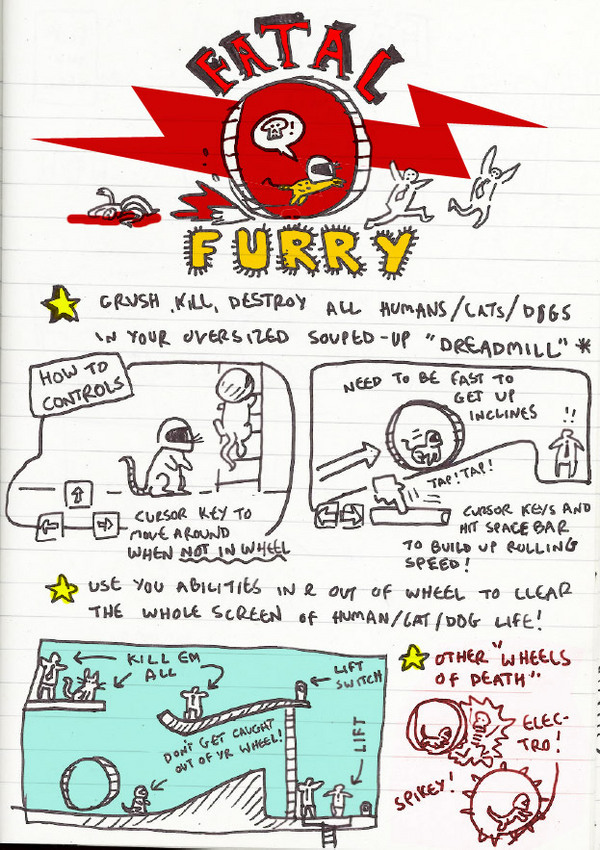 FATAL
!
FURRY
CRUSH, KILL, DESTROY ALL HUMANS/CATS/DOGS
IN YOUR OVERSIZED SOUPED-UP "DREADMILL" *
HOW TO
CONTROLS
CURSOR KEY TO
MOVE AROUND
WHEN NOT IN WHEEL
NEED TO BE FAST TO
GET UP
INCLINES
!!
TAP! TAP!
CURSOR KEYS AND
HIT SPACE BAR
TO BUILD UP ROLLING
SPEED!
USE YOU ABILITIES IN & OUT OF WHEEL TO CLEAR
THE WHOLE SCREEN OF HUMAN/CAT/DOG LIFE!
KILL EM
ALL
LIFT
SWITCH
DON'T GET CAUGHT
OUT OF YR WHEEL!
LIFT
OTHER "WHEELS
OF DEATH"
ELEC-
TRO!
SPIKEY!